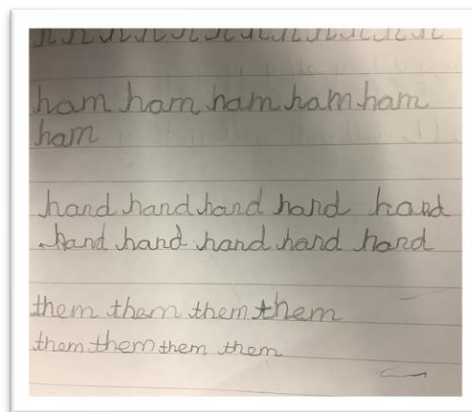 ham ham ham ham ham
ham
hand hand hand hand hand
hand hand hand hand hand
them them them them
them them them them